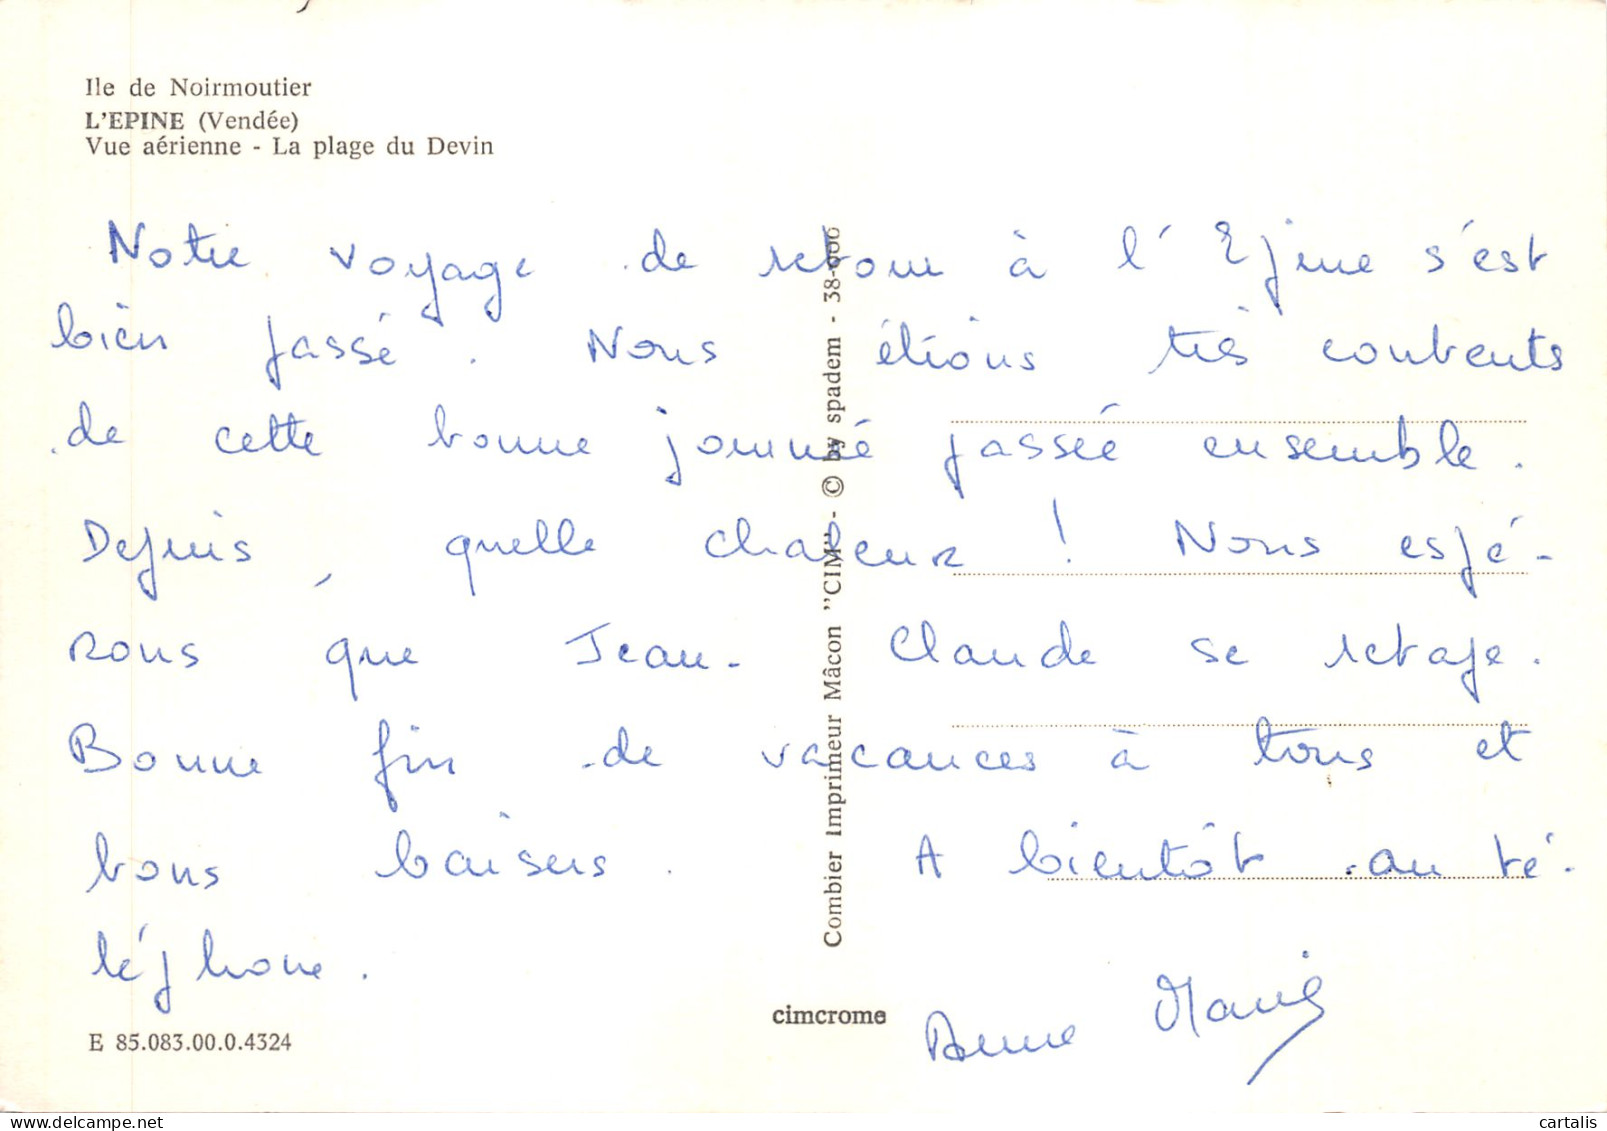 Ile de Noirmoutier
L'EPINE (Vendée)
Vue aérienne - La plage du Devin
Notre voyage de retour à l'Epine s'est
bien passé. Nous étions très contents
de cette bonne journée passée ensemble.
Depuis, quelle chaleur ! Nous espé-
rons que Jean-Claude se retape.
Bonne fin de vacances à tous et
bons baisers. A bientôt au té-
léphone.
Anne Marie
Combier Imprimeur Mâcon "CIM" - © by spadem - 38-000
cimcrome
E 85.083.00.0.4324
cartalis